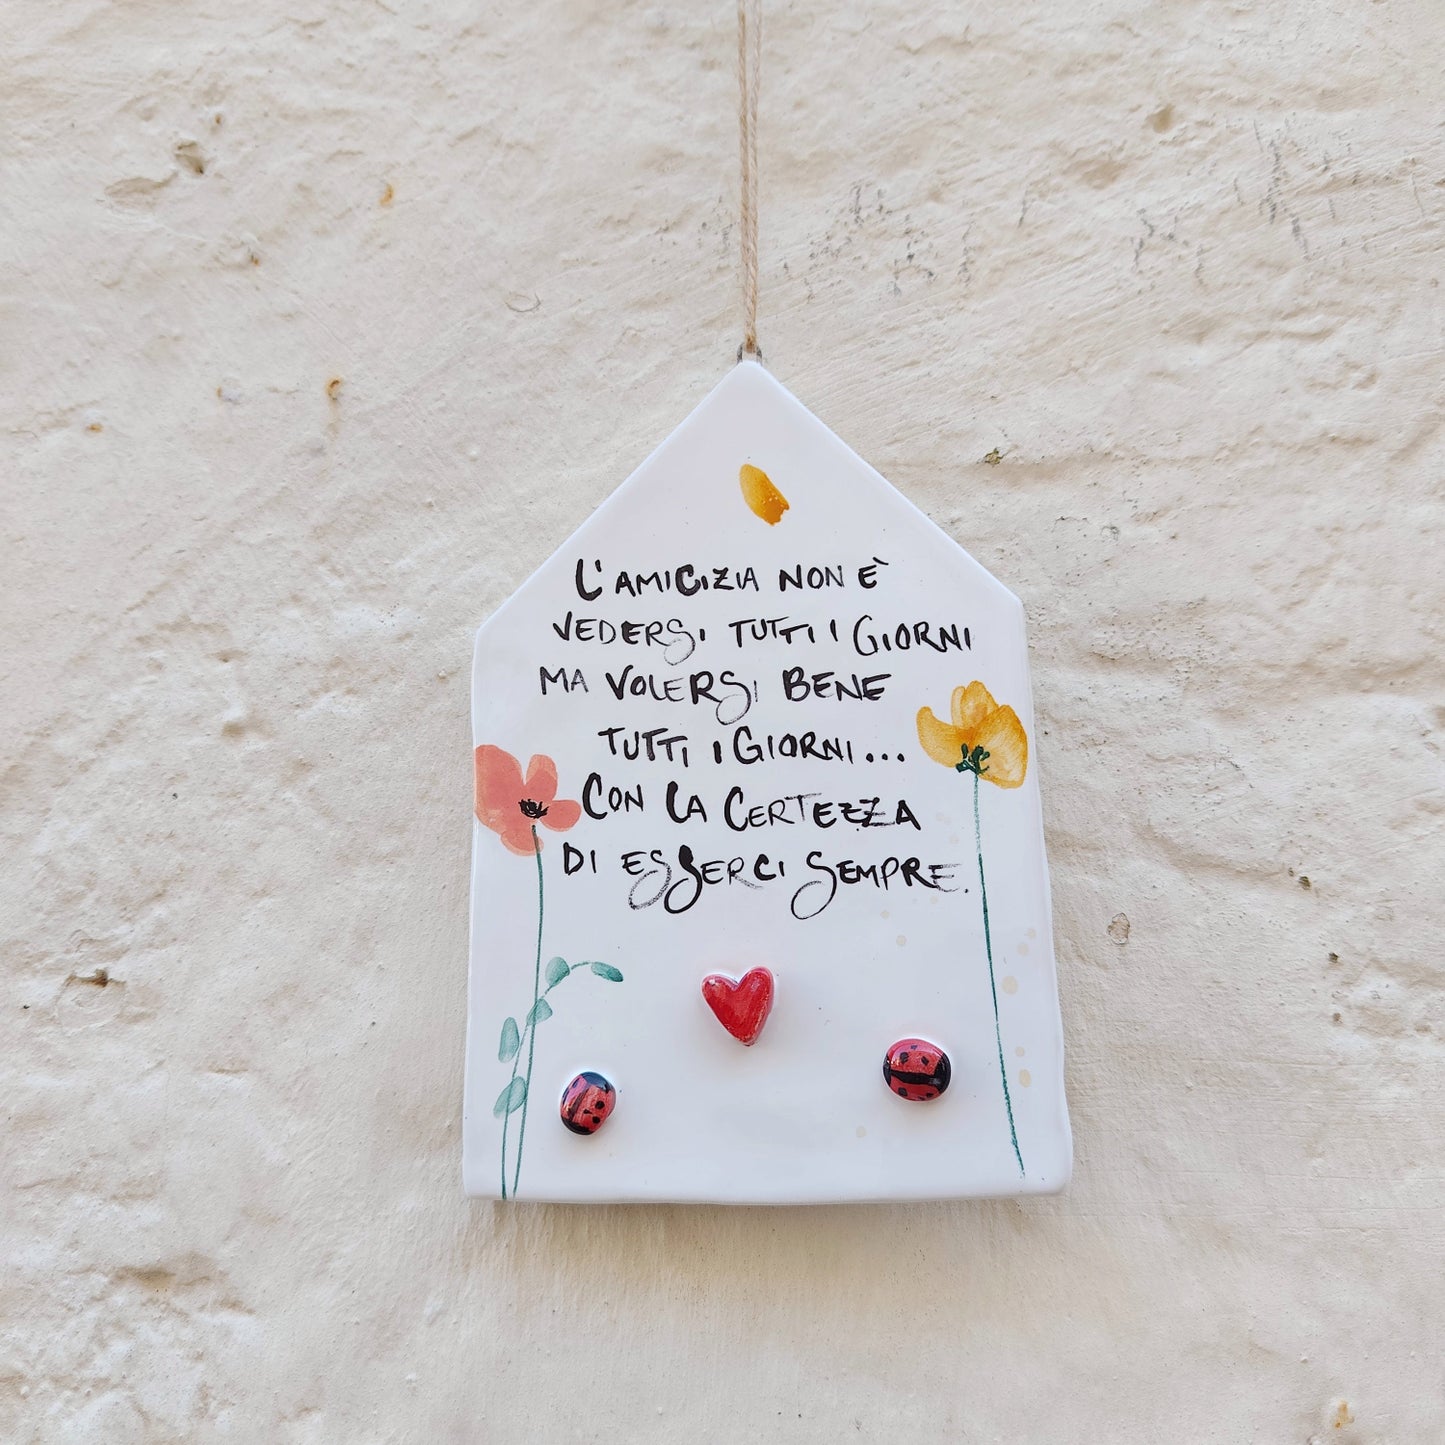 L'AMICIZIA NON È
VEDERSI TUTTI I GIORNI
MA VOLERSI BENE
TUTTI I GIORNI...
CON LA CERTEZZA
DI ESSERCI SEMPRE.